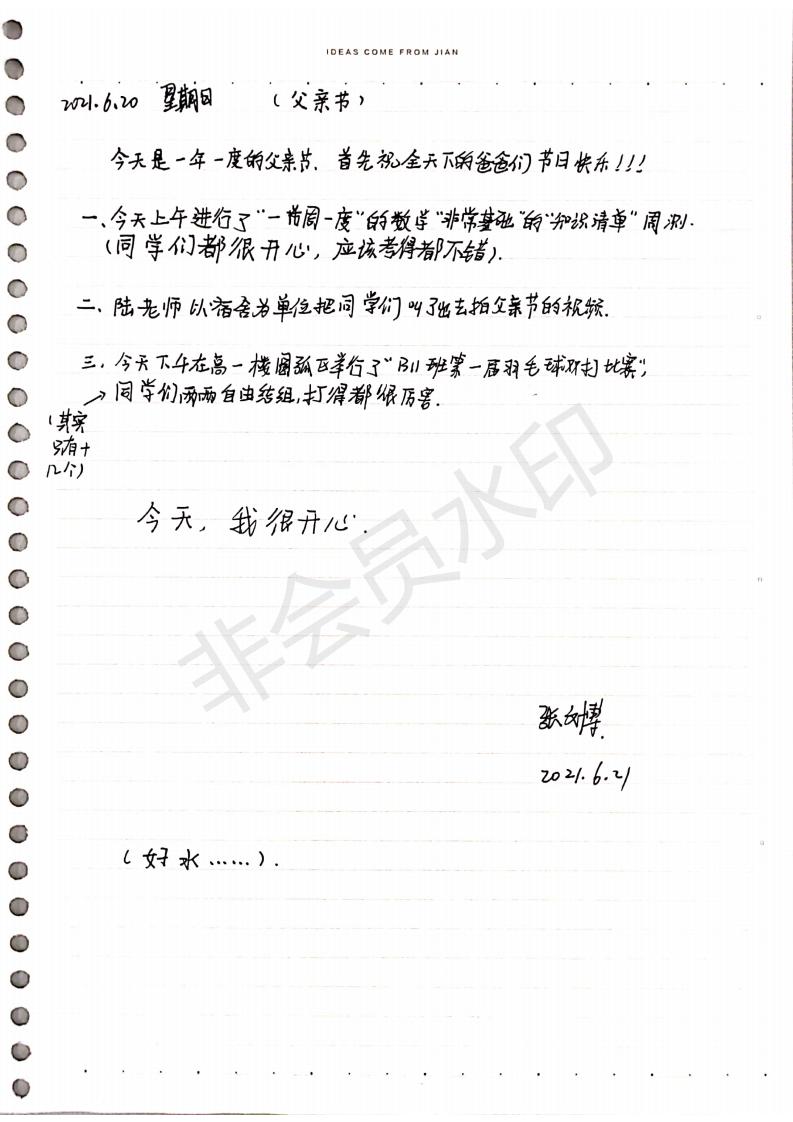 IDEAS COME FROM JIAN
2021.6.20 星期日 (父亲节)
今天是一年一度的父亲节. 首先祝全天下的爸爸们节日快乐!!!
一、今天上午进行了"一周一度"的数学"非常基础"的"知识清单"周测.
(同学们都很开心, 应该考得都不错).
二、陆老师以宿舍为单位把同学们叫了出去拍父亲节的视频.
三、今天下午在高一楼圈弧正举行了"B11班第一届羽毛球双打比赛",
同学们两两自由结组,打得都很厉害.
(其实
只有十
几个)
今天, 我很开心.
张文博
2021.6.21
(好水……).
非会员水印